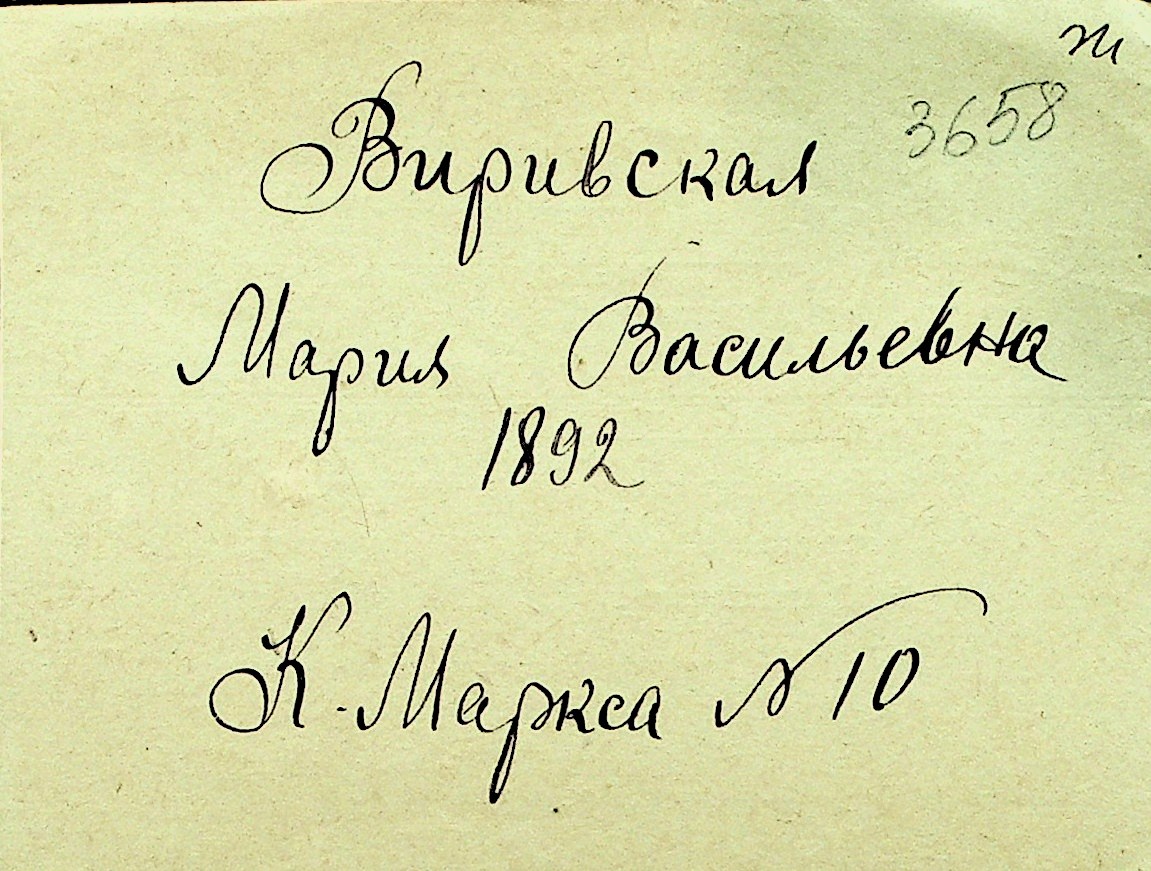 ж
3658
Виривская
Мария Васильевна
1892
К. Маркса N 10